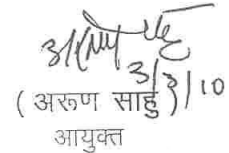 3/3/10
( अरूण साहु )
आयुक्त